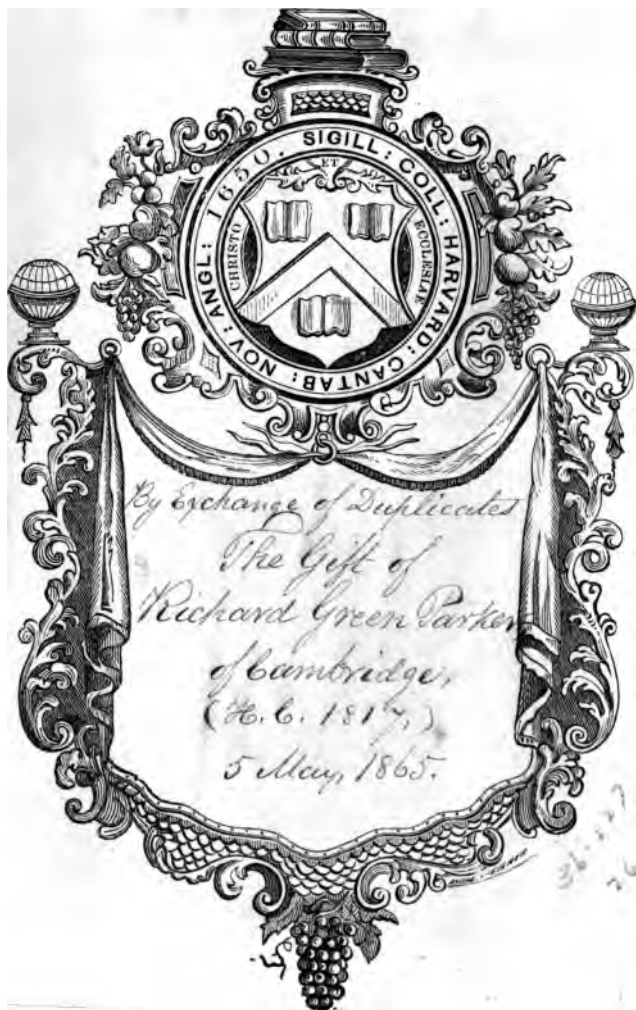 SIGILL: COLL: HARVARD: CANTAB: NOV: ANGL: 1650.
ET
CHRISTO
ECCLESIAE
By Exchange of Duplicates
The Gift of
Richard Green Parker
of Cambridge,
(H. C. 1817,)
5 May, 1865.